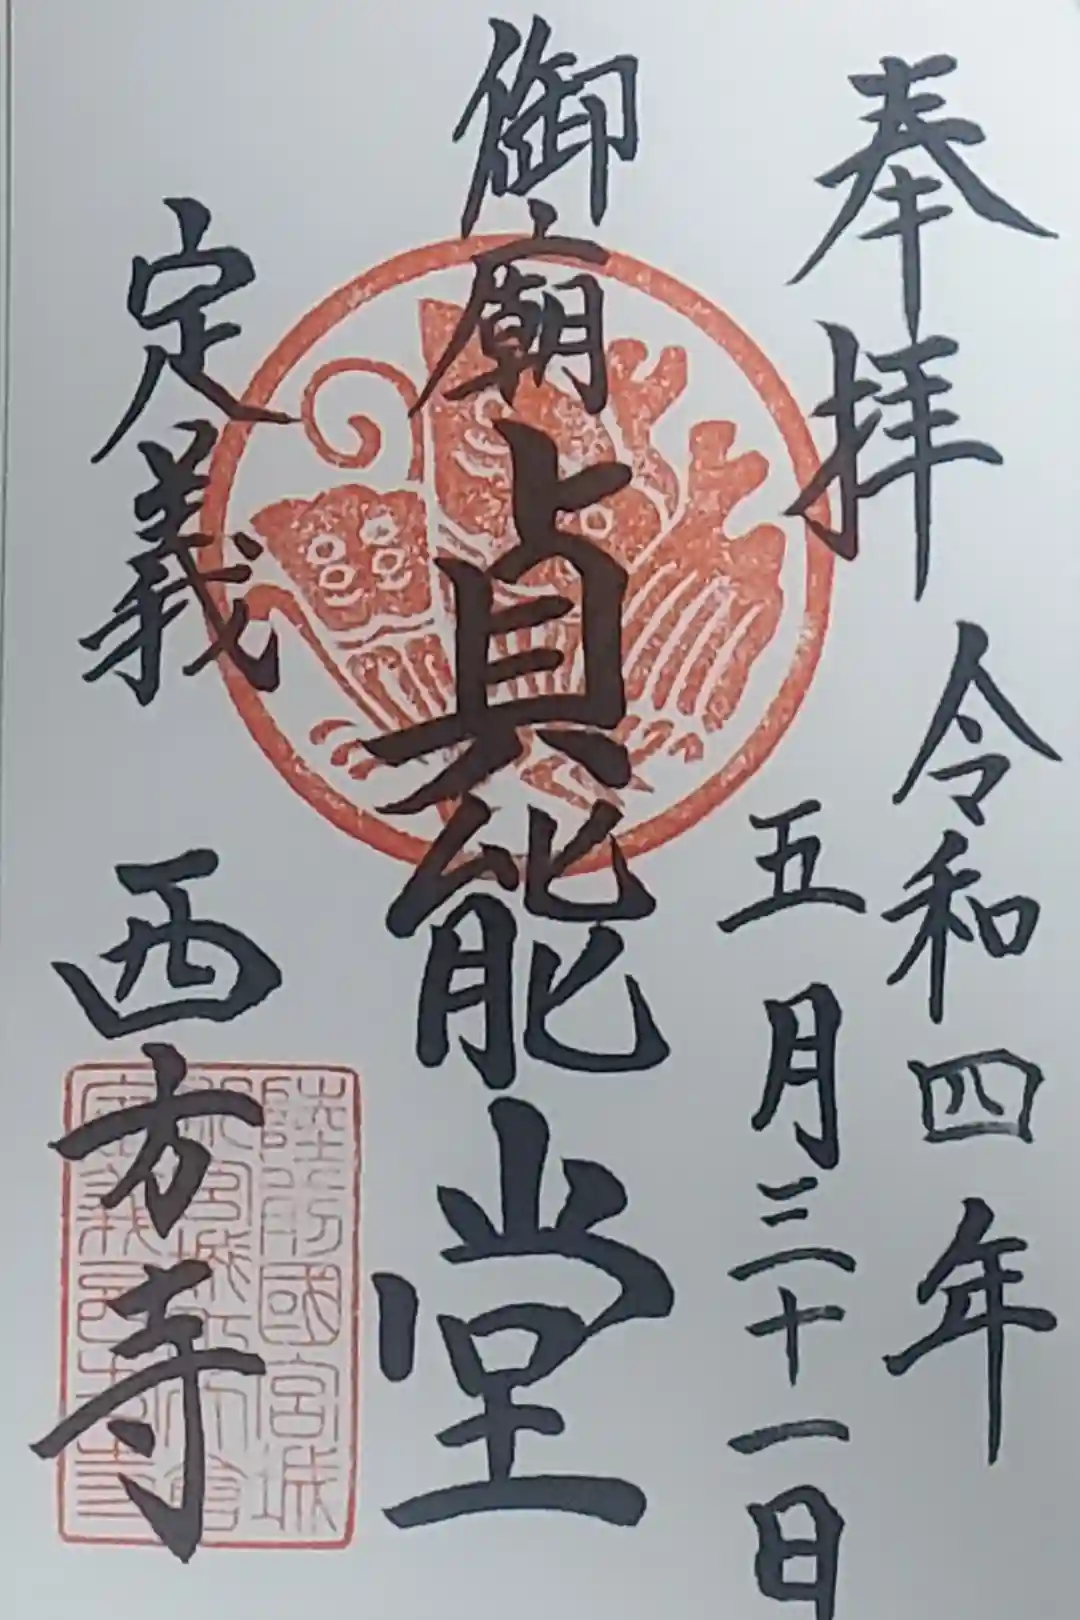 奉拝
令和四年
五月三十一日
御廟貞能堂
定義 西方寺